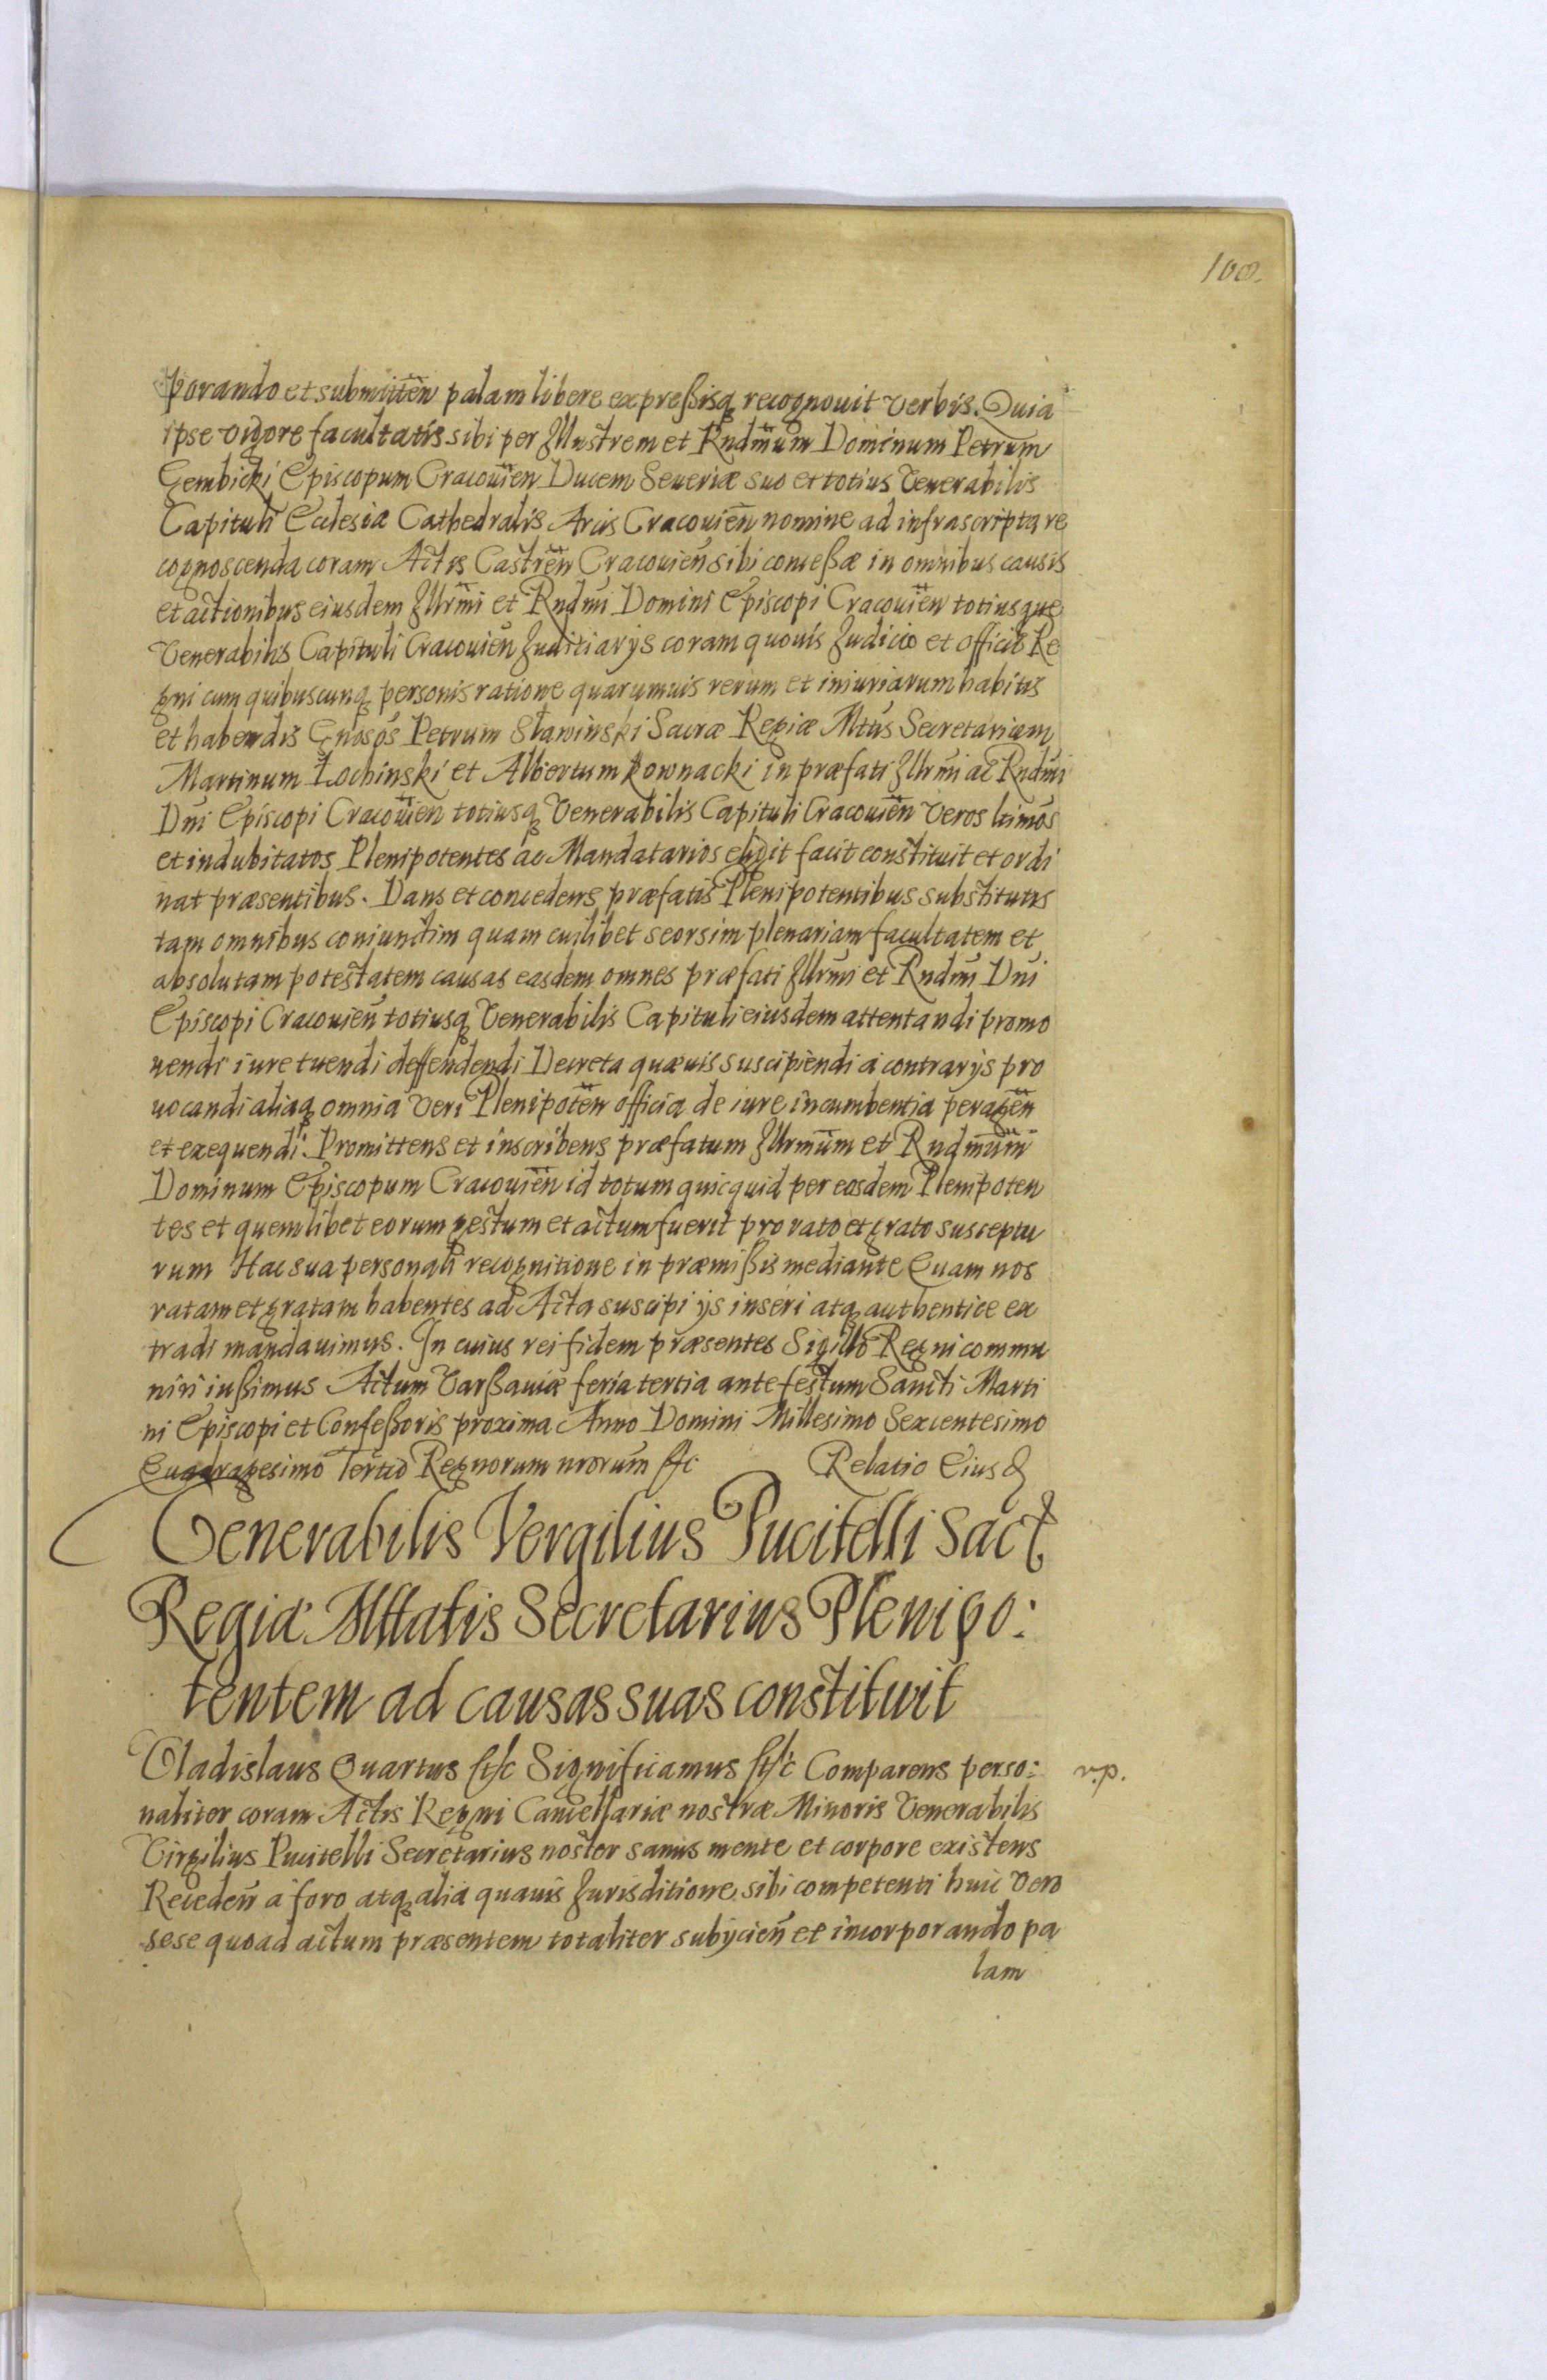 108.
porando et submitten̄ palam libere expreßisq̨ recognouit verbis. Quia
ipse vigore facultatis sibi per Illustrem et Rndm̄um Dominum Petrum
Gembicki Episcopum Cracouien̄ Ducem Seueriæ suo et totius Venerabilis
Capituli Ecclesiæ Cathedralis Arcis Cracouien̄ nomine ad infrascripta re
cognoscenda coram Actis Castren̄ Cracouien̄ sibi conceßæ in omnibus causis
et actionibus eiusdem Illrm̄i et Rndm̄i Domini Episcopi Cracouien̄ totiusque
Venerabilis Capituli Cracouien̄ Juditiarys coram quouis Judicio et officio Re
gni cum quibuscunq̨ personis ratione quarumuis rerum et iniuriarum habitis
et habendis Gnosos Petrum Sławinski Sacræ Regiæ Mtis Secretarium
Martinum Łochinski et Albertum Kownacki in præfati Illrm̄i ac Rndm̄i
Dn̄i Episcopi Cracouien̄ totiusq̨ Venerabilis Capituli Cracouien̄ veros ltimos
et indubitatos Plenipotentes ac Mandatarios eligit facit constituit et ordi
nat præsentibus. Dans et concedens præfatis Plenipotentibus substitutis
tam omnibus coniunctim quam cuilibet seorsim plenariam facultatem et
absolutam potestatem causas easdem omnes præfati Illrm̄i et Rndm̄i Dn̄i
Episcopi Cracouien̄ totiusq̨ Venerabilis Capituli eiusdem attentandi promo
uendi iure tuendi deffendendi Decreta quæuis suscipiendi a contrarys pro
uocandi aliaq̨ omnia veri Plenipoten̄ officia de iure incumbentia peragen̄
et exequendi. Promittens et inscribens præfatum Illrm̄um et Rndm̄um
Dominum Episcopum Cracouien̄ id totum quicquid per eosdem Plenipoten
tes et quemlibet eorum gestum et actum fuerit pro rato et grato susceptu
rum Hac sua personali recognitione in præmißis mediante Quam nos
ratam et gratam habentes ad Acta suscipi ijs inseri atq̨ authentice ex
tradi mandauimus. In cuius rei fidem præsentes Sigillo Regni commu
niri iußimus Actum Varßauiæ feria tertia ante festum Sancti Marti
ni Episcopi et Confeßoris proxima Anno Domini Millesimo Sexcentesimo
Quadragesimo Tertio Regnorum nrorum̄ &c Relatio Eiusd
Venerabilis Vergilius Pucitelli Sacr̨
Regiæ Mttatis Secretarius Plenipo:
tentem ad causas suas constituit
Vladislaus Quartus &c Significamus &c Comparens perso: v.p.
naliter coram Actis Regni Cancellariæ nostræ Minoris Venerabilis
Virgilius Pucitelli Secretarius noster sanus mente et corpore existens
Receden̄ a foro atq̨ alia quauis Jurisditione sibi competenti huic vero
sese quoad actum præsentem totaliter subijcien̄ et incorporando pa
lam